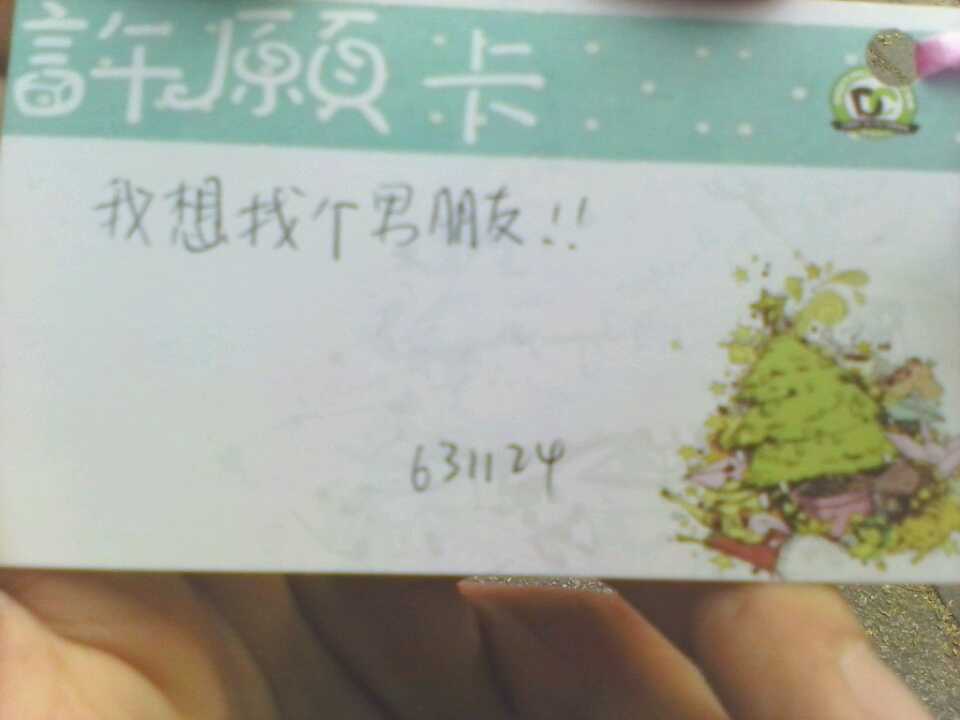 許願卡
DC
我想找个男朋友!!
631124